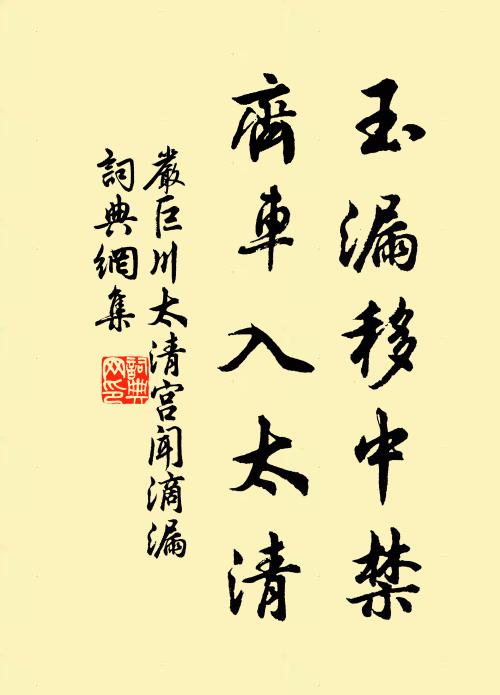 玉漏移中禁
齊車入太清
嚴巨川太清宮聞滴漏
詞典網集
詞典網印